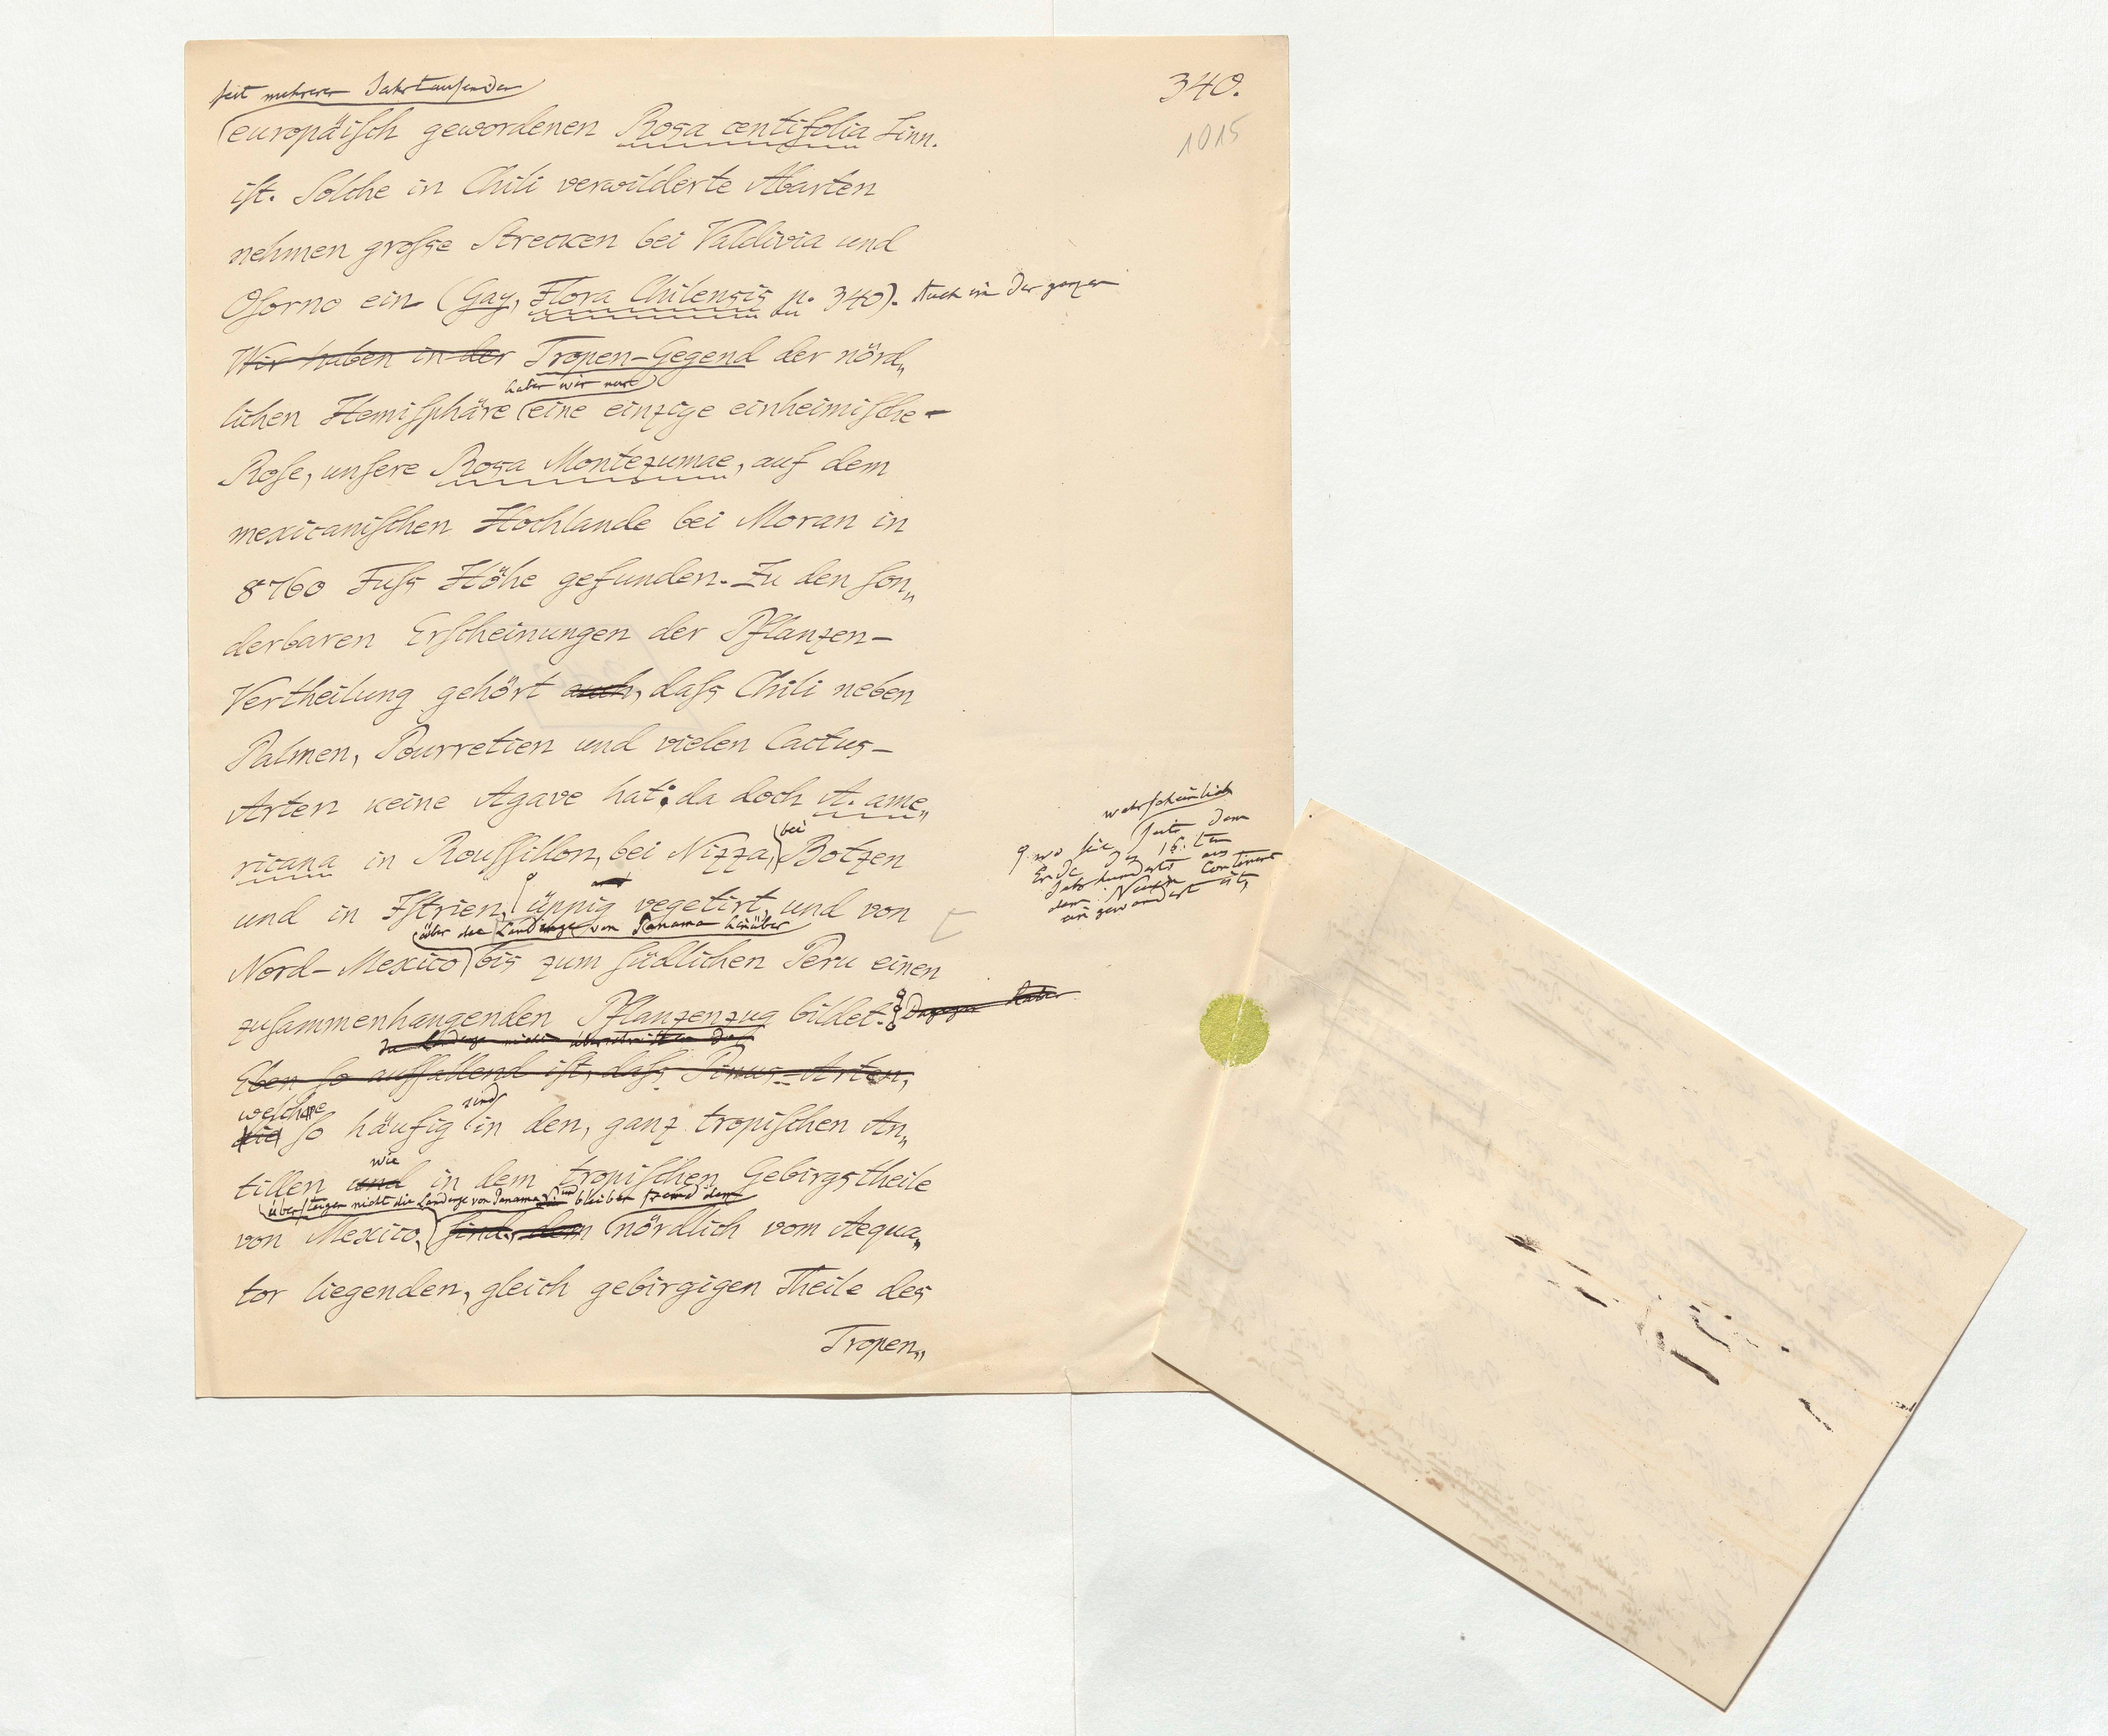 340.
1015
seit mehreren Jahrtausenden
europäisch gewordenen Rosa centifolia Linn.
ist. Solche in Chili verwilderte Abarten
nehmen grosse Strecken bei Valdivia und
Osorno ein (Gay, Flora Chilensis p. 340). Auch in der ganzen
Wir haben in der Tropen-Gegend der nörd„
haben wir nur
lichen Hemisphäre eine einzige einheimische
Rose, unsere Rosa Montezumae, auf dem
mexicanischen Hochlande bei Moran in
8760 Fuss Höhe gefunden. Zu den son„
derbaren Erscheinungen der Pflanzen-
Vertheilung gehört auch, dass Chili neben
Palmen, Pourretien und vielen Cactus-
Arten keine Agave hat: da doch A. ame„
bei
ricana in Roussillon, bei Nizza, Botzen
und in Istrien, üppig vegetirt, und von
wahrscheinlich
wo sie seit dem
Ende des 16.ten
Jahrhunderts aus
dem Neuen Continent
eingewandert ist,
über die Landenge von Panama hinüber
Nord-Mexico bis zum südlichen Peru einen
zusammenhangenden Pflanzenzug bildet.
Eben so auffallend ist, dass Pinus-Arten,
welche sind
die so häufig in den, ganz tropischen An„
wie
tillen und in dem tropischen Gebirgstheile
übersteigen nicht die Landenge von Panama und bleiben fremd dem
von Mexico, sind, dem nördlich vom Aequa„
tor liegenden, gleich gebirgigen Theile des
Tropen„